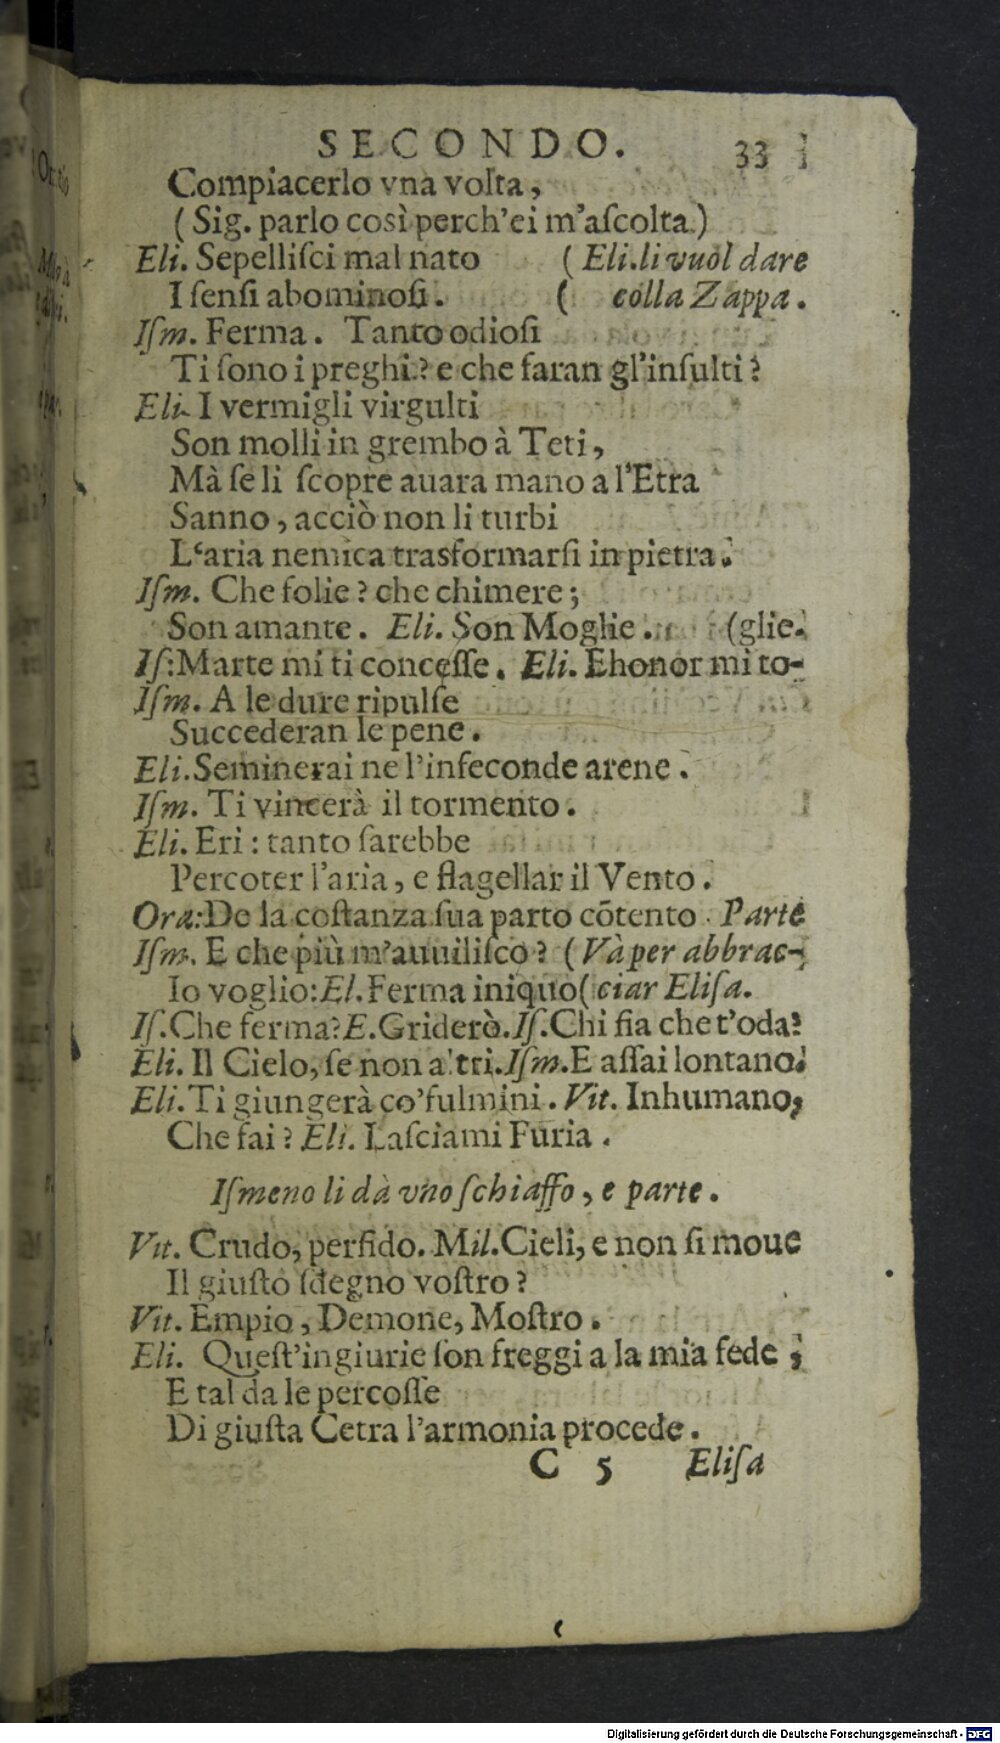 SECONDO. 33
Compiacerlo vna volta,
( Sig. parlo così perch'ei m'aſcolta.)
Eli. Sepelliſci mal nato ( Eli. li vuol dare
I ſenſi abominoſi. ( colla Zappa.
Iſm. Ferma. Tanto odioſi
Ti ſono i preghi? e che faran gl'inſulti?
Eli. I vermigli virgulti
Son molli in grembo à Teti,
Mà ſe li ſcopre auara mano a l'Etra
Sanno, acciò non li turbi
L'aria nemica trasformarſi in pietra.
Iſm. Che folie? che chimere;
Son amante. Eli. Son Moglie. (glie.
Iſ: Marte mi ti conceſſe. Eli. Ehonor mi to-
Iſm. A le dure ripulſe
Succederan le pene.
Eli. Seminerai ne l'infeconde arene.
Iſm. Ti vincerà il tormento.
Eli. Eri: tanto ſarebbe
Percoter l'aria, e flagellar il Vento.
Ora: De la coſtanza ſua parto cōtento. Parte
Iſm. E che più m'auuiliſco? (Và per abbrac-
Io voglio: El. Ferma iniquo (ciar Eliſa.
Iſ. Che ferma? E. Griderò. Iſ. Chi fia che t'oda?
Eli. Il Cielo, ſe non altri. Iſm. E aſſai lontano.
Eli. Ti giungerà co'fulmini. Vit. Inhumano,
Che fai? Eli. Laſciami Furia.
Iſmeno li dà vno ſchiaffo, e parte.
Vit. Crudo, perfido. Mil. Cieli, e non ſi moue
Il giuſto ſdegno voſtro?
Vit. Empio, Demone, Moſtro.
Eli. Queſt'ingiurie ſon freggi a la mia fede;
E tal da le percoſſe
Di giuſta Cetra l'armonia procede.
C 5 Eliſa
Digitalisierung gefördert durch die Deutsche Forschungsgemeinschaft - DFG